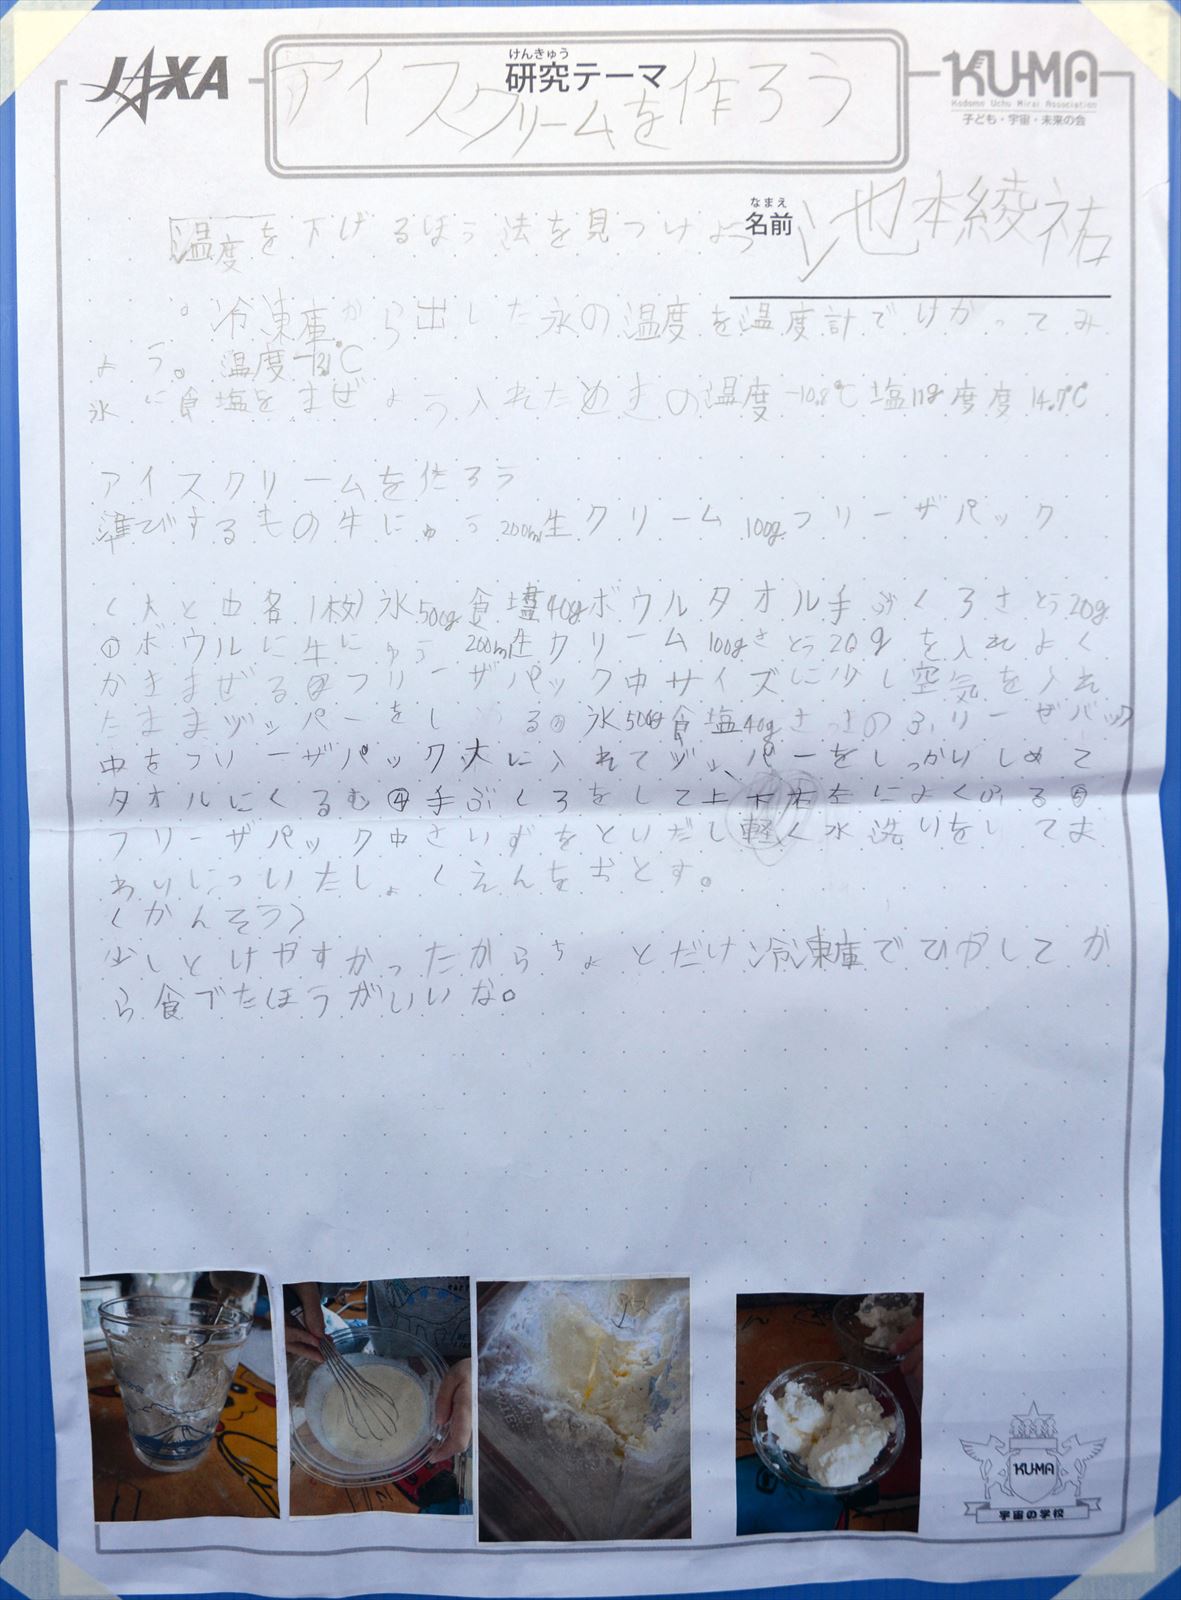 JAXA
けんきゅう
研究テーマ
アイスクリームを作ろう
KU-MA
Kodomo Uchu Mirai Association
子ども・宇宙・未来の会
なまえ
名前 池本綾祐
温度を下げるほう法を見つけよう
。冷凍庫から出した氷の温度を温度計ではかってみ
よう。温度
氷に食塩をまぜよう入れためきの温度-10.8℃塩11g度度14.7℃
アイスクリームを作ろう
準びするもの牛にゅう200ml生クリーム100gフリーザパック
(大と中各1枚)氷500g食塩40gボウルタオル手ぶくろさとう20g
①ボウルに牛にゅう200ml生クリーム100gさとう20gを入れよく
かきまぜる②フリーザパック中サイズに少し空気を入れ
たままヅッパーをしめる③氷500g食塩40gさっきのふリーザパック
中をフリーザパック大に入れてヅッパーをしっかりしめて
タオルにくるむ④手ぶくろをして上下左右によくふる⑤
フリーザパック中さいずをといだし軽く水洗いをしてま
わりについたしょくえんをおとす。
(かんそう)
少しとけやすかったからちょとだけ冷凍庫でひやしてか
ら食べたほうがいいな。
KU-MA
宇宙の学校